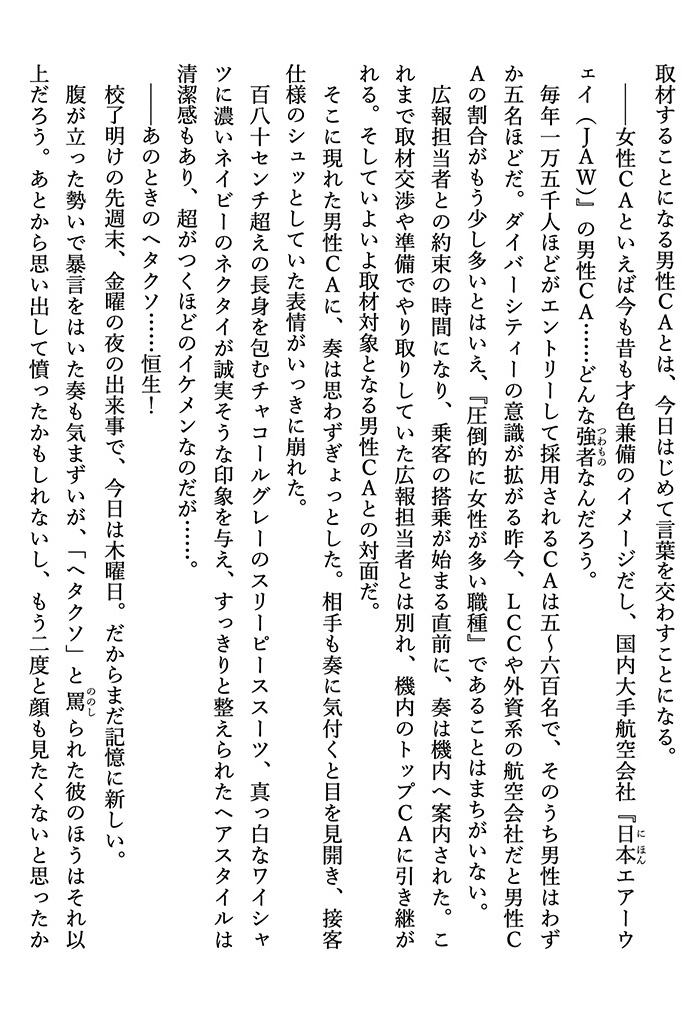 取材することになる男性ＣＡとは、今日はじめて言葉を交わすことになる。
――女性ＣＡといえば今も昔も才色兼備のイメージだし、国内大手航空会社『日本エアーウ
ェイ（ＪＡＷ）』の男性ＣＡ……どんな強者なんだろう。
毎年一万五千人ほどがエントリーして採用されるＣＡは五～六百名で、そのうち男性はわず
か五名ほどだ。ダイバーシティーの意識が拡がる昨今、ＬＣＣや外資系の航空会社だと男性Ｃ
Ａの割合がもう少し多いとはいえ、『圧倒的に女性が多い職種』であることはまちがいない。
広報担当者との約束の時間になり、乗客の搭乗が始まる直前に、奏は機内へ案内された。こ
れまで取材交渉や準備でやり取りしていた広報担当者とは別れ、機内のトップＣＡに引き継が
れる。そしていよいよ取材対象となる男性ＣＡとの対面だ。
そこに現れた男性ＣＡに、奏は思わずぎょっとした。相手も奏に気付くと目を見開き、接客
仕様のシュッとしていた表情がいっきに崩れた。
百八十センチ超えの長身を包むチャコールグレーのスリーピーススーツ、真っ白なワイシャ
ツに濃いネイビーのネクタイが誠実そうな印象を与え、すっきりと整えられたヘアスタイルは
清潔感もあり、超がつくほどのイケメンなのだが……。
――あのときのヘタクソ……恒生！
校了明けの先週末、金曜の夜の出来事で、今日は木曜日。だからまだ記憶に新しい。
腹が立った勢いで暴言をはいた奏も気まずいが、「ヘタクソ」と罵られた彼のほうはそれ以
上だろう。あとから思い出して憤ったかもしれないし、もう二度と顔も見たくないと思ったか